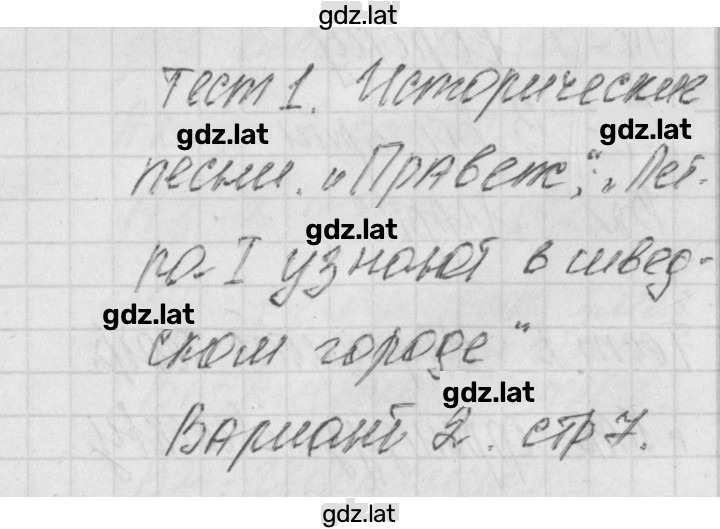 gdz.lat
Тест 1. Исторические
gdz.lat gdz.lat
песни. „Правеж“, „Пет-
gdz.lat
ра I узнают в швед-
gdz.lat
ском городе“
gdz.lat
Вариант 2. стр 7.
gdz.lat